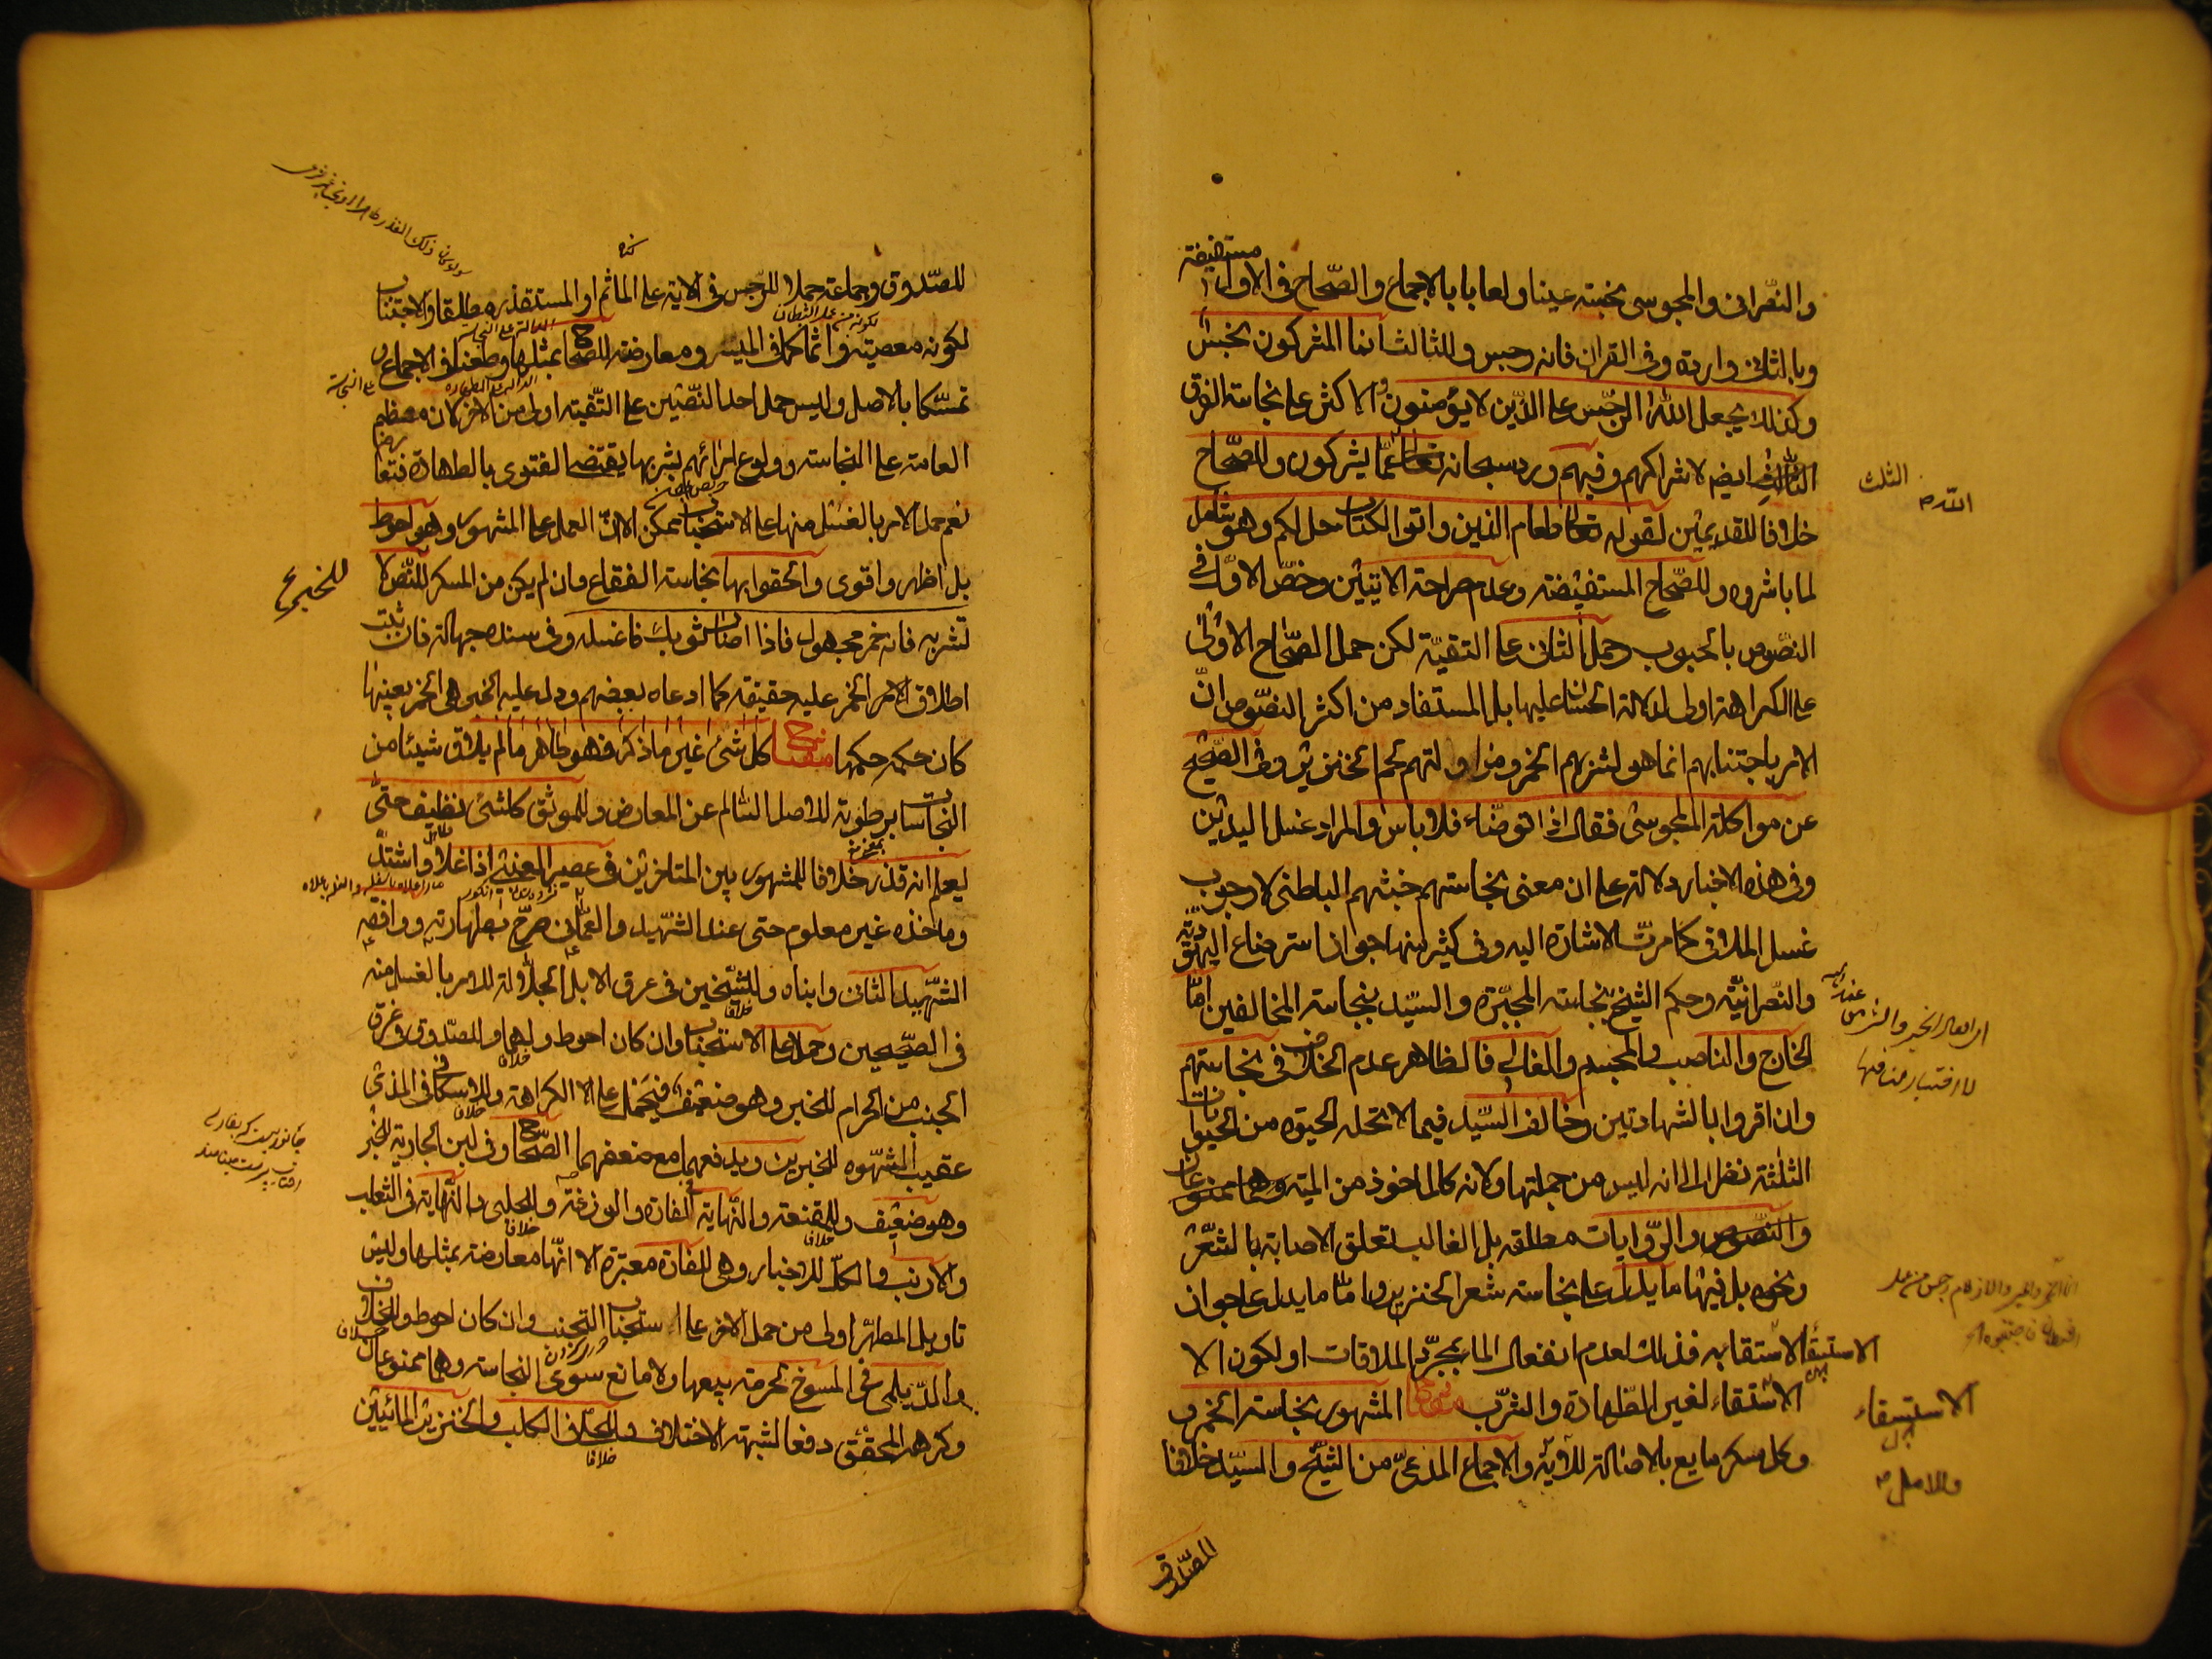 والنصرانى والمجوسى نجسة عينا ولعابا بالاجماع والصحاح فى الاول مستفيضة
وبالثانى واردة وفى القران فانه رجس وللثالث انما المشركون نجس
وكذلك يجعل الله الرجس على الذين لا يؤمنون والاكثر على نجاسة الفرق
الثالث ايضا لاشراكهم وفيهم ورد سبحانه تعالى عما يشركون وللصحاح
خلافا للقديمين لقوله تعالى وطعام الذين اوتوا الكتاب حل لكم وهو شامل
لما باشروه وللصحاح المستفيضة وعدم صراحة الايتين وخص الاول فى
النصوص بالحبوب وحمل الثانى على التقية لكن حمل الصحاح الاولى
على الكراهة اولى لدلالة الحسان عليها بل المستفاد من اكثر النصوص ان
الامر باجتنابهم انما هو لشربهم الخمر ومزاولتهم لحم الخنزير وفى الصحيح
عن مواكلة المجوسى فقال اذا توضاء فلا باس والمراد غسل اليدين
وفى هذه الاخبار دلالة على ان معنى نجاستهم خبثهم الباطنى لا وجوب
غسل الملاقى كما مرت الاشارة اليه وفى كثير منها جواز استرضاع اليهودية
والنصرانية وحكم الشيخ بنجاسة المجبرة والسيد بنجاسة المخالفين اما
الخارج والناصب والمجسم والغالى فالظاهر عدم الخلاف فى نجاستهم
وان اقروا بالشهادتين وخالف السيد فيما لا تحله الحيوة من الحيوانات
الثلثة نظرا الى انه ليس من جملتها ولانه كالماخوذ من الميتة وهما ممنوعان
والنصوص والروايات مطلقة بل الغالب تعلق الاصابة بالشعر
ونحوه بل فيها ما يدل على نجاسة شعر الخنزير واما ما يدل على جواز
الاستقا به فذلك لعدم انفعال الما بمجرد الملاقات او لكون الا
الاستقاء لغير الطهارة والشرب مفتاح المشهور نجاسة الخمر و
وكل مسكر مايع بالاصالة للاية والاجماع المدعى من الشيخ والسيد خلافا
للصدوق
الثلث
الاستسقاء
وللاصل
للصدوق وجماعة حملا للرجس فى الاية على الماثم او المستقذر مطلقا والاجتناب
لكونه معصية واثما كما فى الميسر ومعارضة للصحاح بمثلها وطعنا فى الاجماع و
تمسكا بالاصل وليس حمل احد النصين على التقية اولى من الاخر لان معظم
العامة على النجاسة وولوع امرائهم بشربها يقتضى الفتوى بالطهارة تبعا
نعم حمل الامر بالغسل منها على الاستحباب ممكن الا ان العمل على المشهور وهو احوط
بل اظهر واقوى والحقوا بها نجاسة الفقاع وان لم يكن من المسكر للنص لا
تشربه فانه خمر مجهول فاذا اصاب ثوبك فاغسله وفى سنده جهالة فان ثبت
اطلاق الامر الخمر عليه حقيقة كما ادعاه بعضهم ودل عليه الخبر هى الخمر بعينها
كان حكمه حكمها مفتاح كل شئ غير ما ذكر فهو طاهر ما لم يلاق شيئا من
النجاسات برطوبة للاصل السالم عن المعارض وللموثق كل شئ نظيف حتى
يعلم انه قذر خلافا للمشهور بين المتاخرين فى عصير العنبى اذا غلا واشتد
وماخذه غير معلوم حتى عند الشهيد والعمانى صرح بطهارته ووافقه
الشهيد الثانى وابناه وللشيخين فى عرق الابل الجلالة للامر بالغسل منه
فى الصحيحين وحملا على الاستحباب وان كان احوط ولهما وللصدوق فى عرق
الجنب من الحرام للخبر وهو ضعيف فيحمل على الا الكراهة وللاسكافى فى المذى
عقيب الشهوة للخبرين ويدفعهما مع ضعفهما الصحاح وفى لبن الجارية للخبر
وهو ضعيف وللمقنعة والنهاية فى الفارة والوزغة وللحلبى والنهاية فى الثعلب
والارنب والكل للاخبار وهى للفارة معتبرة الا انها معارضة بمثلها وليس
تاويل المطهر اولى من حمل الاخر على استحباب التجنب وان كان احوط وللخلاف
والديلمى فى المسوخ لحرمة بيعها ولا مانع سوى النجاسة وهما ممنوعان
وكرهه المحقق دفعا لشبهة الاختلاف وللحلى فى الكلب والخنزير المائيين
للخبر
خلافا